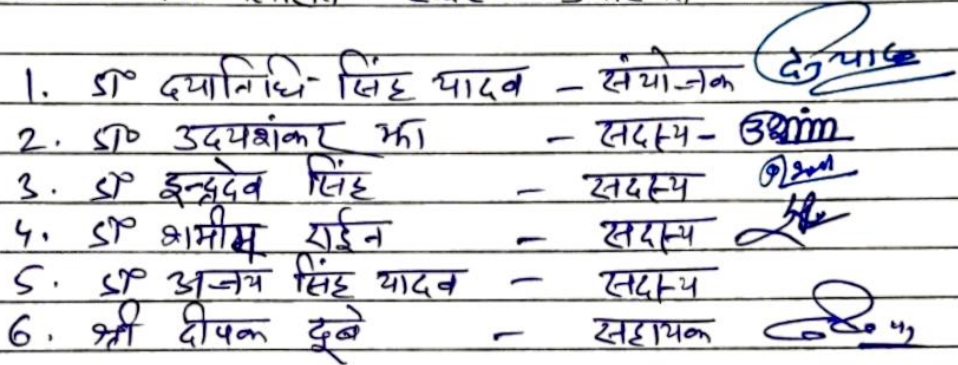 1. डॉ दयानिधि सिंह यादव - संयोजक
2. डॉ० उदयशंकर झा - सदस्य -
3. डॉ इन्द्रदेव सिंह - सदस्य
4. डॉ शमीम राईन - सदस्य
5. डॉ अजय सिंह यादव - सदस्य
6. श्री दीपक दूबे - सहायक